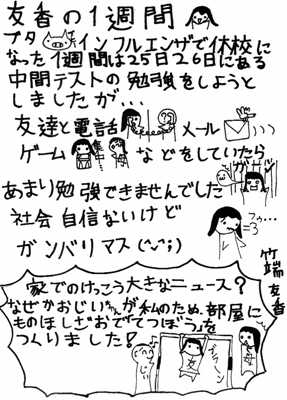 友香の1週間
ブタ インフルエンザで休校に
なった1週間は25日26日にある
中間テストの勉強をしようと
しましたが…
友達と電話 メール
ゲーム などをしていたら
あまり勉強できませんでした
社会自信ないけど
ガンバリマス(^~^;)
フゥ…
竹端友香
家でのけっこう大きなニュース?
なぜかおじいちゃんが私のため、部屋に
ものほしざおで「てつぼう」を
つくりました!
ブラーン